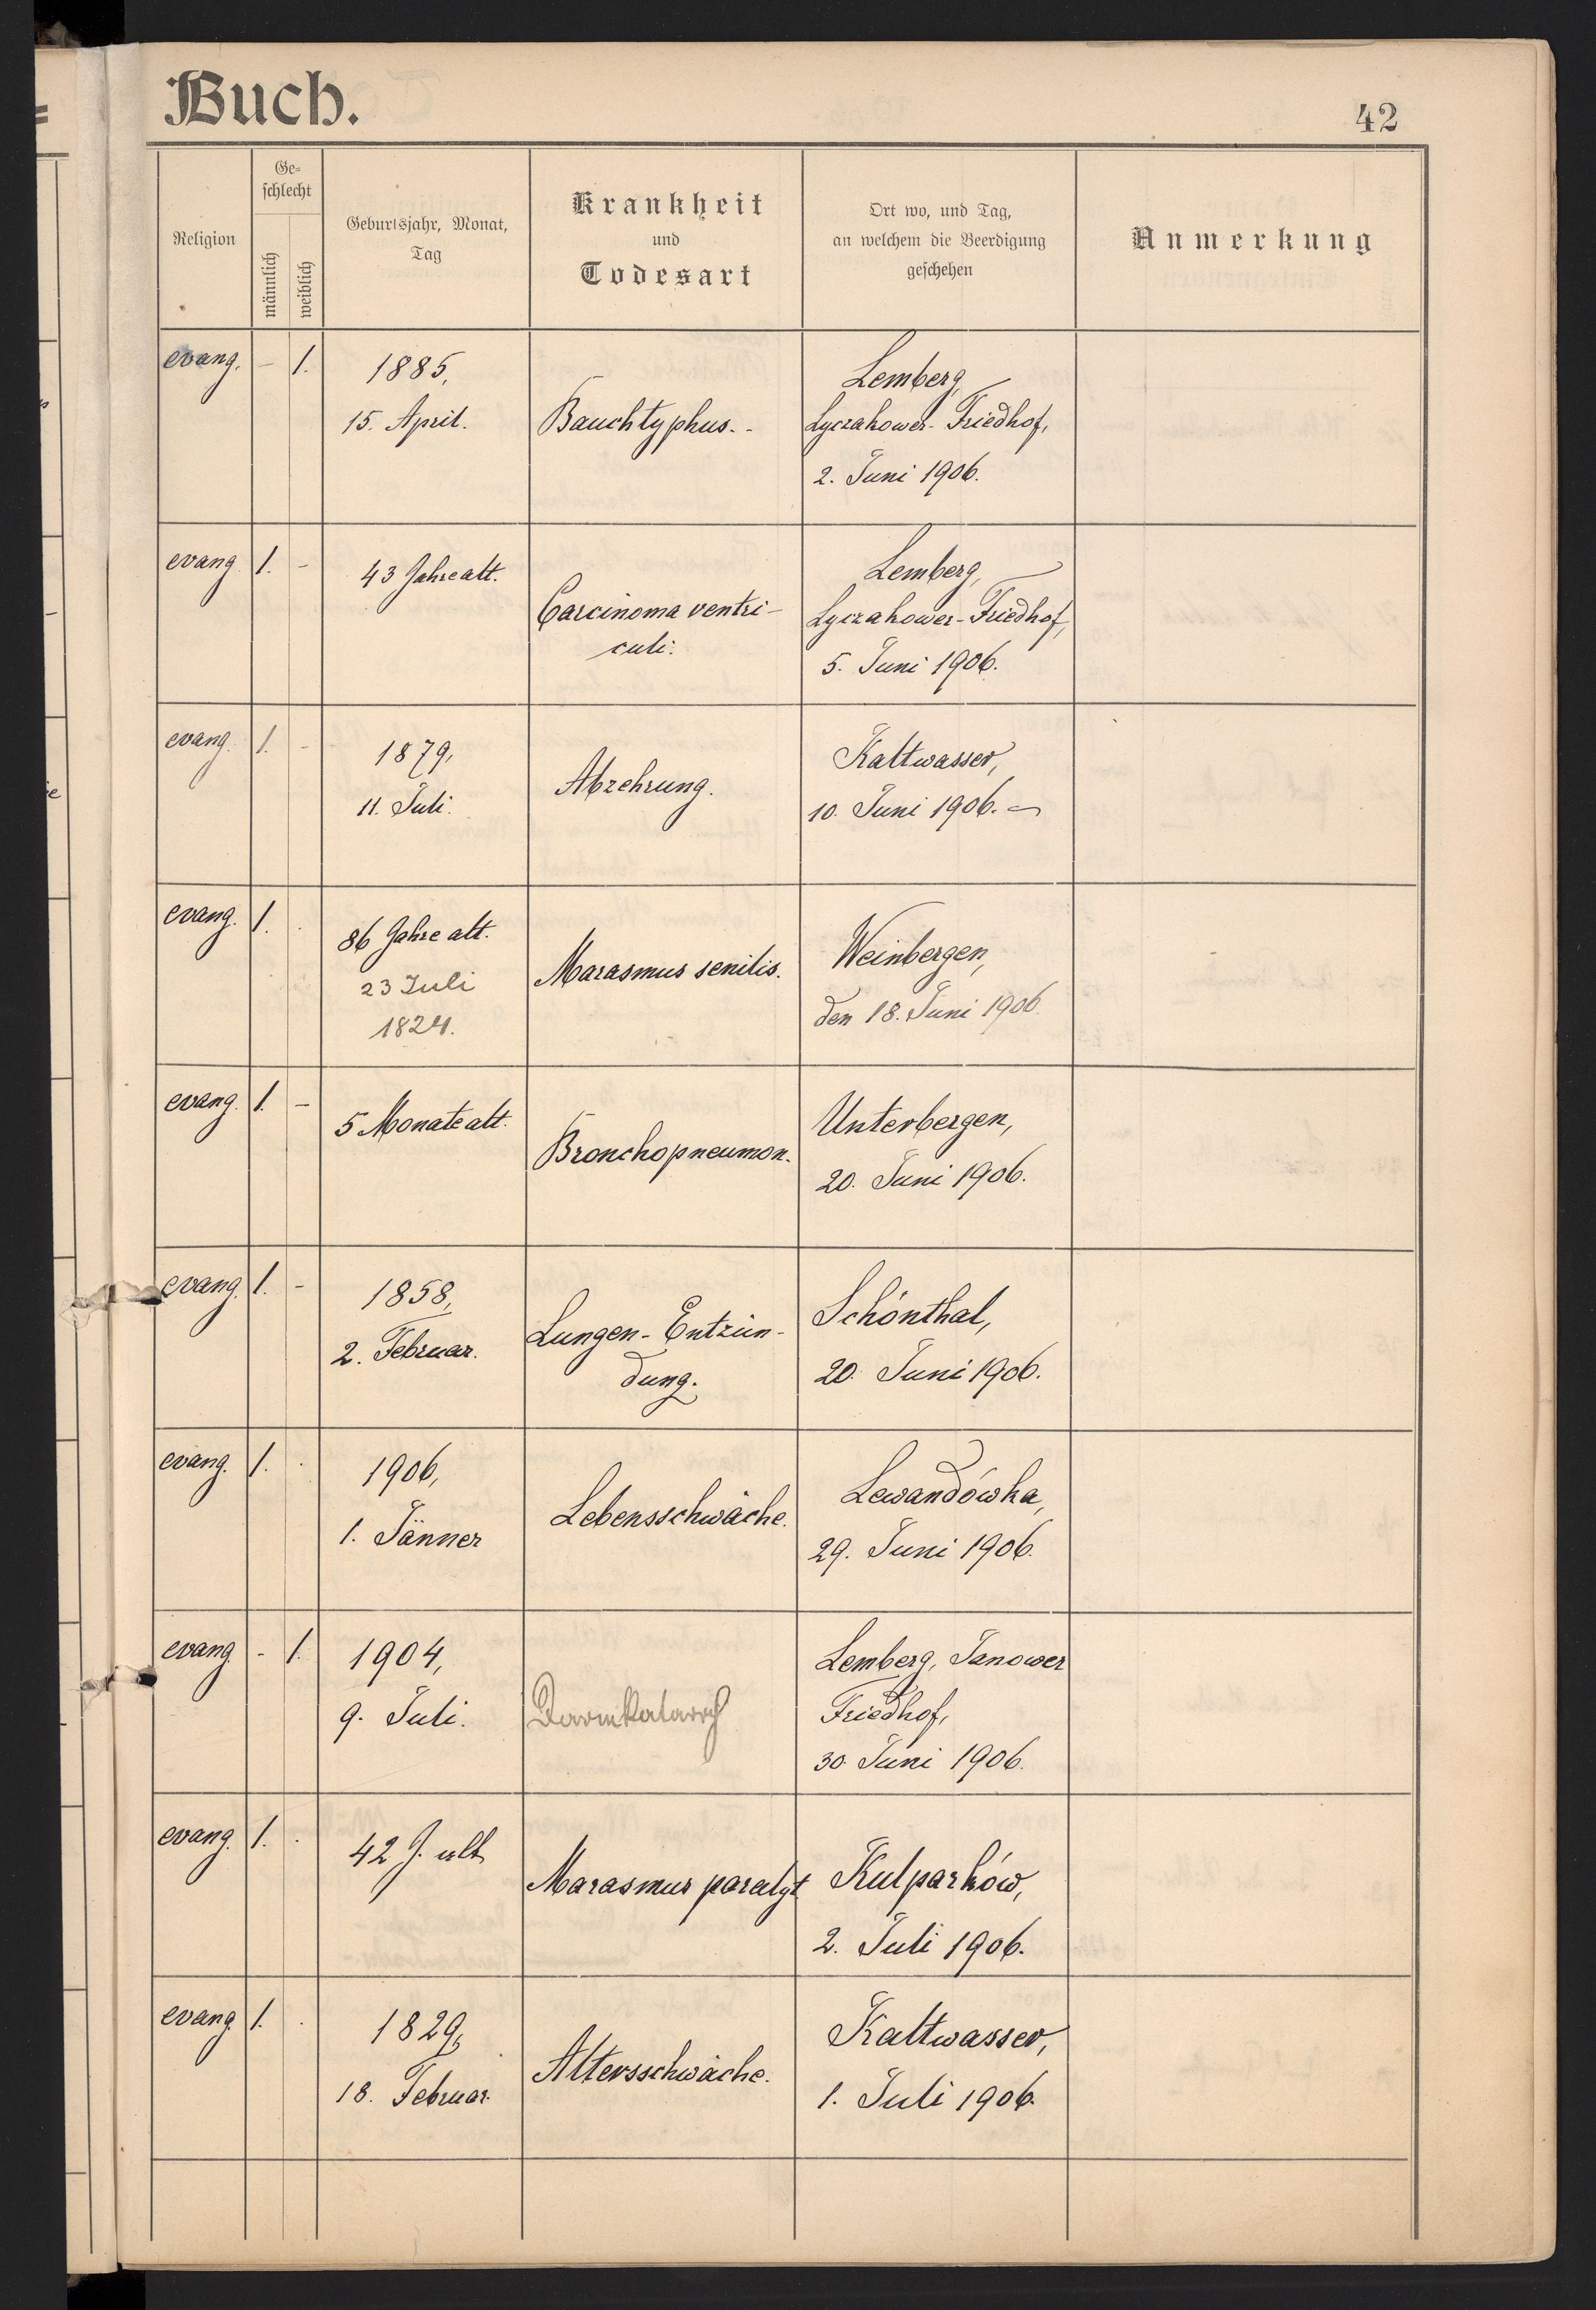 Buch.
42
Religion
Ge-
schlecht
männlich
weiblich
Geburtsjahr, Monat,
Tag
Krankheit
und
Todesart
Ort wo, und Tag,
an welchem die Beerdigung
geschehen
Anmerkung
evang. - 1.
1885,
15. April.
Bauchtyphus. -
Lemberg,
Lyczakower-Friedhof,
2. Juni 1906.
evang. 1. -
43 Jahre alt.
Carcinoma ventri-
culi.
Lemberg,
Lyczakower-Friedhof,
5. Juni 1906.
evang. 1. -
1879,
11. Juli.
Abzehrung.
Kaltwasser,
10. Juni 1906.
evang. 1. .
86 Jahre alt.
23 Juli
1824.
Marasmus senilis.
Weinbergen,
den 18. Juni 1906.
evang. 1. -
5 Monate alt.
Bronchopneumon.
Unterbergen,
20. Juni 1906.
evang. 1. -
1858,
2. Februar.
Lungen-Entzün-
dung.
Schönthal,
20. Juni 1906.
evang. 1. .
1906,
1. Jänner
Lebensschwäche.
Lewandówka,
29. Juni 1906.
evang. - 1.
1904,
9. Juli.
Darmkatarrh
Lemberg, Janower
Friedhof,
30. Juni 1906.
evang. 1. .
42 J. alt
Marasmus paralyt
Kulparków,
2. Juli 1906.
evang. 1. .
1829,
18. Februar.
Altersschwäche.
Kaltwasser,
1. Juli 1906.